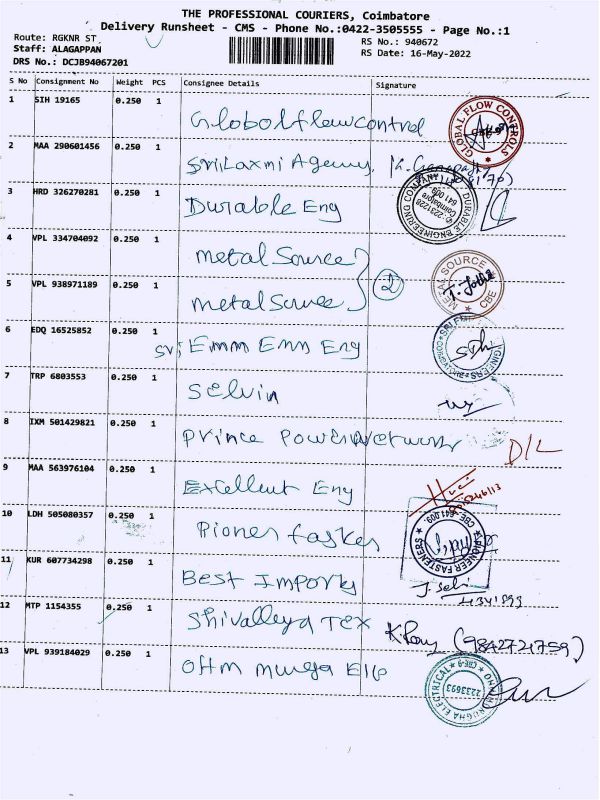 THE PROFESSIONAL COURIERS, Coimbatore
Delivery Runsheet - CMS - Phone No.:0422-3505555 - Page No.:1
Route: RGKNR ST
RS No.: 940672
Staff: ALAGAPPAN
RS Date: 16-May-2022
DRS No.: DCJB94067201
S No Consignment No Weight PCS Consignee Details Signature
1 SIH 19165 0.250 1 Globolflowcontrol GLOBAL FLOW CONTROLS
2 MAA 290601456 0.250 1 SriLaxmi Agency
3 HRD 326270281 0.250 1 Durable Eng DURABLE ENGINEERING COMPANY 2231228 Coimbatore 641 009
4 VPL 334704092 0.250 1 metal Source METAL SOURCE CBE
5 VPL 938971189 0.250 1 metal Source 2
6 EDQ 16525852 0.250 1 Sri Emm Emm Eng
7 TRP 6803553 0.250 1 Selvin
8 IXM 501429821 0.250 1 Prince Power Network D/L
9 MAA 563976104 0.250 1 Excellent Eng
10 LDH 505080357 0.250 1 Pioner fastes PIONEER FASTENERS CBE-641 009
11 KUR 607734298 0.250 1 Best Imports
12 MTP 1154355 0.250 1 Shivalleya Tex K.Ramy (9842721759)
13 VPL 939184029 0.250 1 OHm muruga Ele 2233693